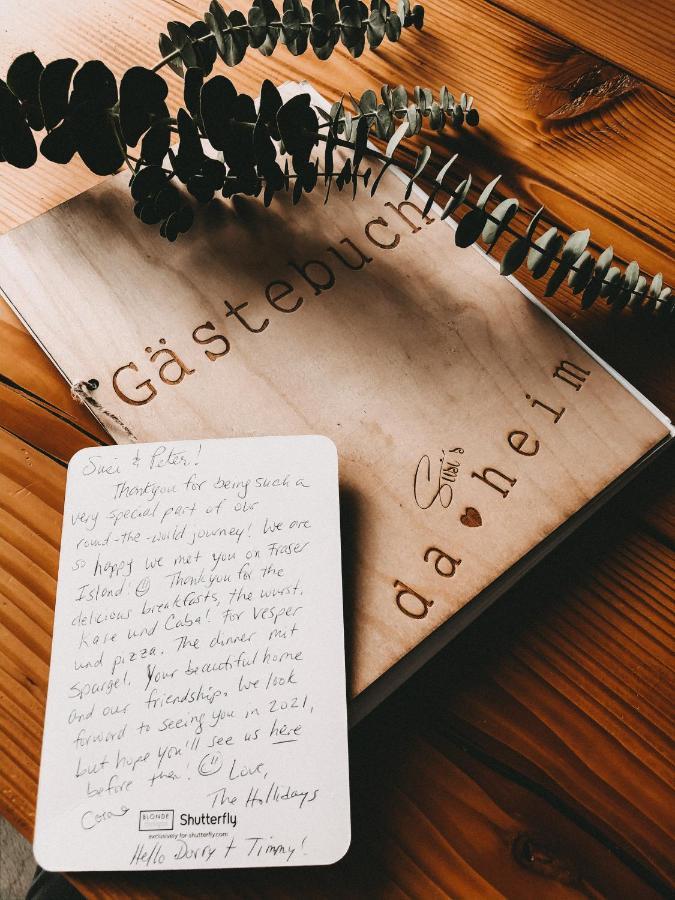 Gästebuch
Susi's
da heim
Susi & Peter!
Thankyou for being such a
very special part of our
round-the-world journey! We are
so happy we met you on Fraser
Island! Thankyou for the
delicious breakfasts, the wurst,
Käse und Caba! For Vesper
und pizza. The dinner mit
Spargel. Your beautiful home
and our friendship. We look
forward to seeing you in 2021,
but hope you'll see us here
before then! Love,
The Hollidays
Cora
BLONDE
Shutterfly
exclusively for shutterfly.com
Hello Dorry + Timmy!